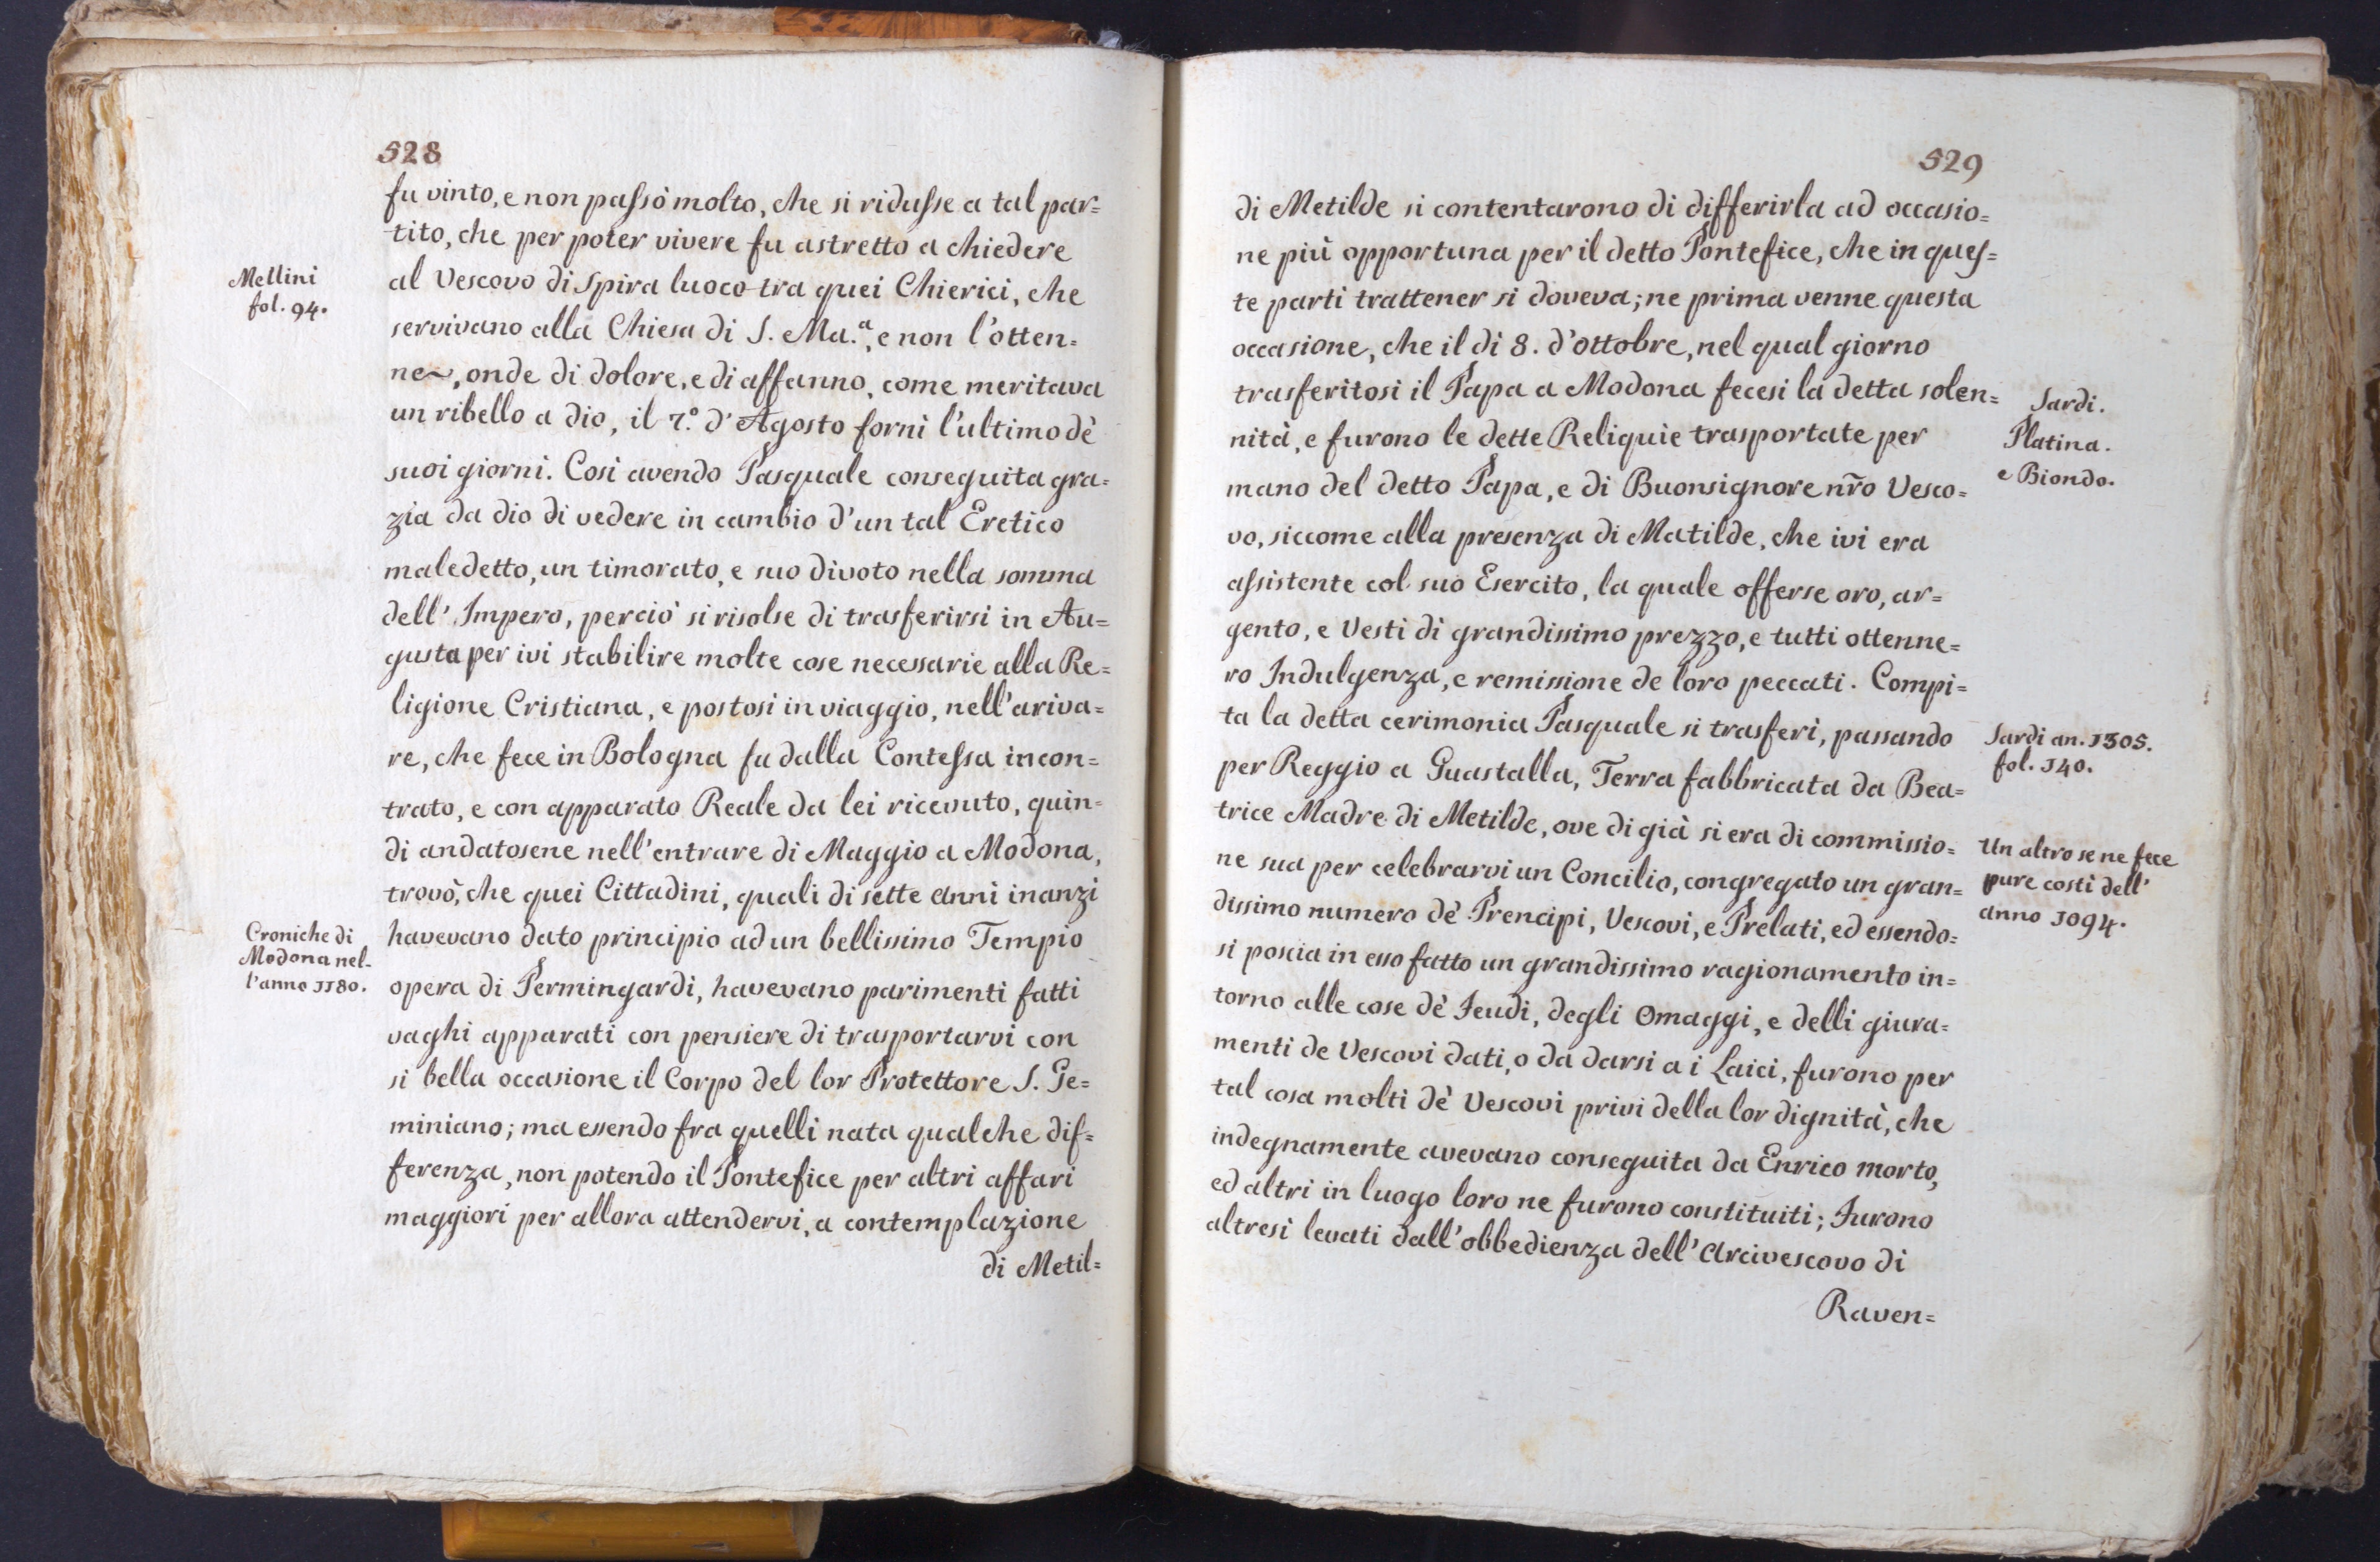 528
fu vinto, e non passò molto, che si ridusse a tal par=
tito, che per poter vivere fu astretto a chiedere
al Vescovo di Spira luoco tra quei Chierici, che
servivano alla Chiesa di S. Ma.ª, e non l'otten=
ne, onde di dolore, e di affanno, come meritava
un ribello a dio, il 7.º d'Agosto fornì l'ultimo dè
suoi giorni. Così avendo Pasquale conseguita gra=
zia da dio di vedere in cambio d'un tal Eretico
maledetto, un timorato, e suo divoto nella somma
dell'Impero, perciò si risolse di trasferirsi in Au=
gusta per ivi stabilire molte cose necessarie alla Re=
ligione Cristiana, e postosi in viaggio, nell'ariva=
re, che fece in Bologna fu dalla Contessa incon=
trato, e con apparato Reale da lei ricevuto, quin=
di andatosene nell'entrare di Maggio a Modona,
trovò, che quei Cittadini, quali di sette anni inanzi
havevano dato principio ad un bellissimo Tempio
opera di Permingardi, havevano parimenti fatti
vaghi apparati con pensiere di trasportarvi con
si bella occasione il Corpo del lor Protettore S. Ge=
miniano; ma essendo fra quelli nata qualche dif=
ferenza, non potendo il Pontefice per altri affari
maggiori per allora attendervi, a contemplazione
di Metil=
Mellini
fol. 94.
Croniche di
Modona nel-
l'anno 1180.
529
di Metilde si contentarono di differirla ad occasio=
ne più opportuna per il detto Pontefice, che in ques=
te parti trattener si doveva; ne prima venne questa
occasione, che il di 8. d'Ottobre, nel qual giorno
trasferitosi il Papa a Modona fecesi la detta solen=
nità, e furono le dette Reliquie trasportate per
mano del detto Papa, e di Buonsignore nr̃o Vesco=
vo, siccome alla presenza di Matilde, che ivi era
assistente col suo Esercito, la quale offerse oro, ar=
gento, e Vesti di grandissimo prezzo, e tutti ottenne=
ro Indulgenza, e remissione de loro peccati. Compi=
ta la detta cerimonia Pasquale si trasferì, passando
per Reggio a Guastalla, Terra fabbricata da Bea=
trice Madre di Metilde, ove di già si era di commissio=
ne sua per celebrarvi un Concilio, congregato un gran=
dissimo numero dè Prencipi, Vescovi, e Prelati, ed essendo=
si poscia in esso fatto un grandissimo ragionamento in=
torno alle cose dè Feudi, degli Omaggi, e delli giura=
menti de Vescovi dati, o da darsi a i Laici, furono per
tal cosa molti dè Vescovi privi della lor dignità, che
indegnamente avevano conseguita da Enrico morto,
ed altri in luogo loro ne furono constituiti; Furono
altresì levati dall'obbedienza dell'Arcivescovo di
Raven=
Sardi.
Platina.
e Biondo.
Sardi an. 1305.
fol. 140.
Un altro se ne fece
pure costì dell'
anno 1094.